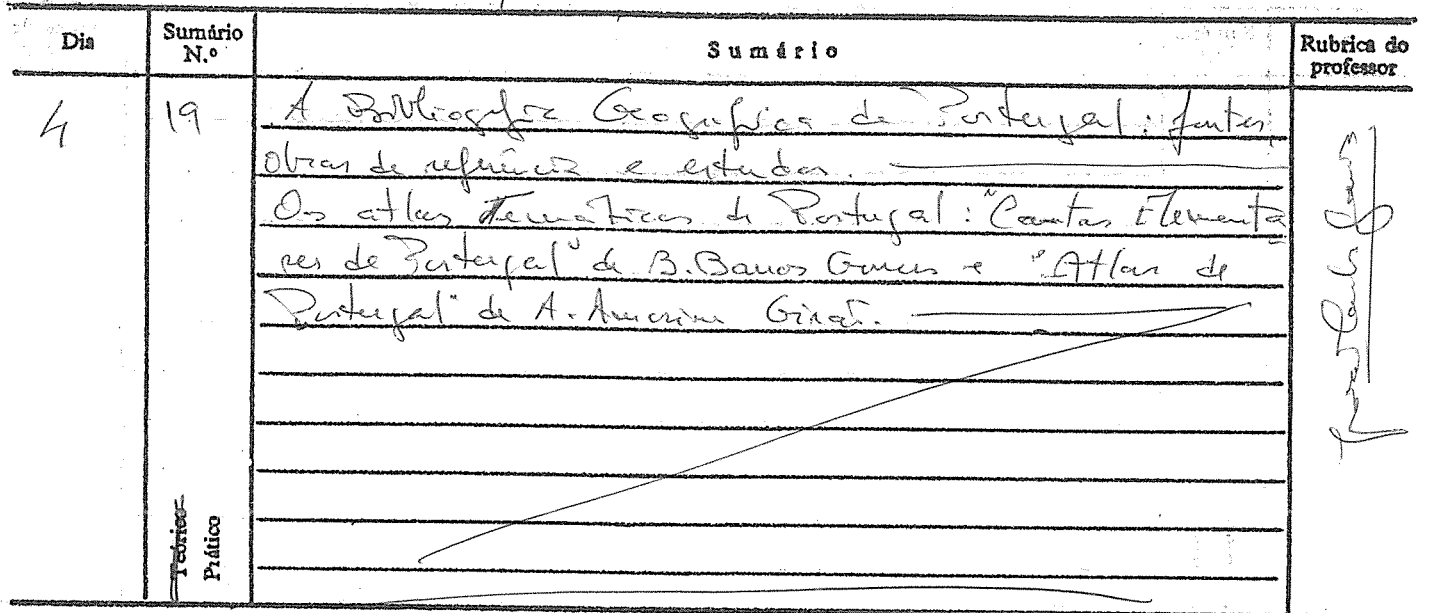 Dia
Sumário N.º
Sumário
Rubrica do professor
4
19
A Bibliografia Geográfica de Portugal: fontes,
obras de referência e estudos.
Os atlas Temáticos de Portugal: "Cartas Elementa
res de Portugal" de B. Barros Gomes e "Atlas de
Portugal" de A. Amorim Girão.
Teórico
Prático